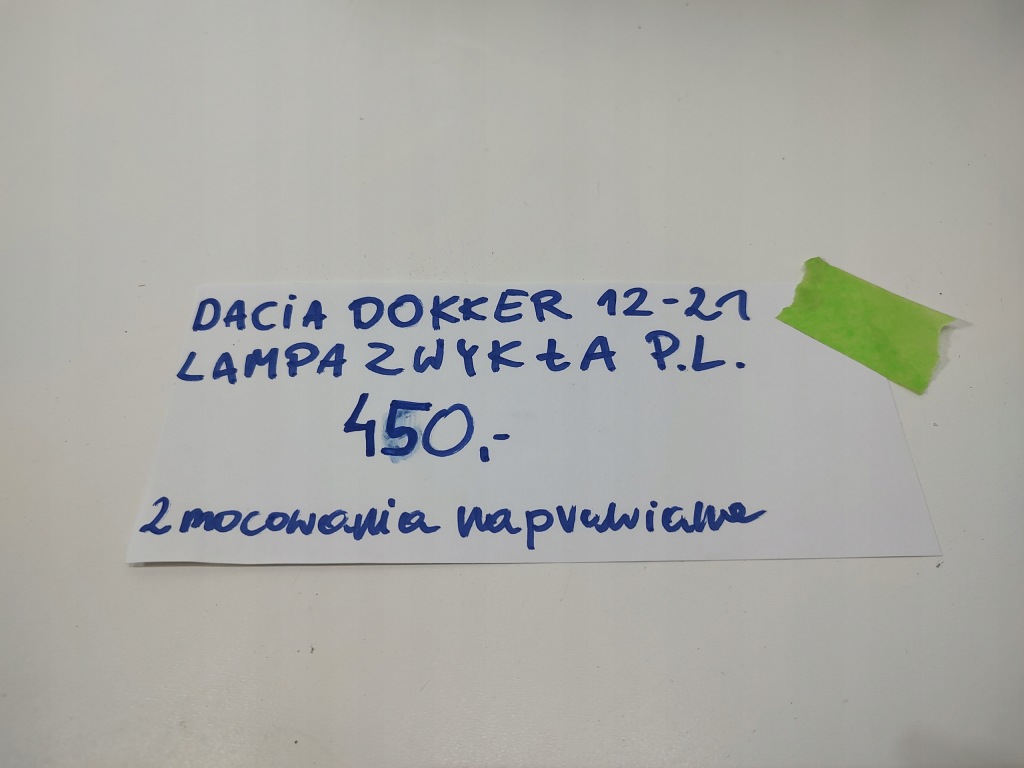 DACIA DOKKER 12-21
LAMPA ZWYKŁA P.L.
450,-
2 mocowania naprawiane